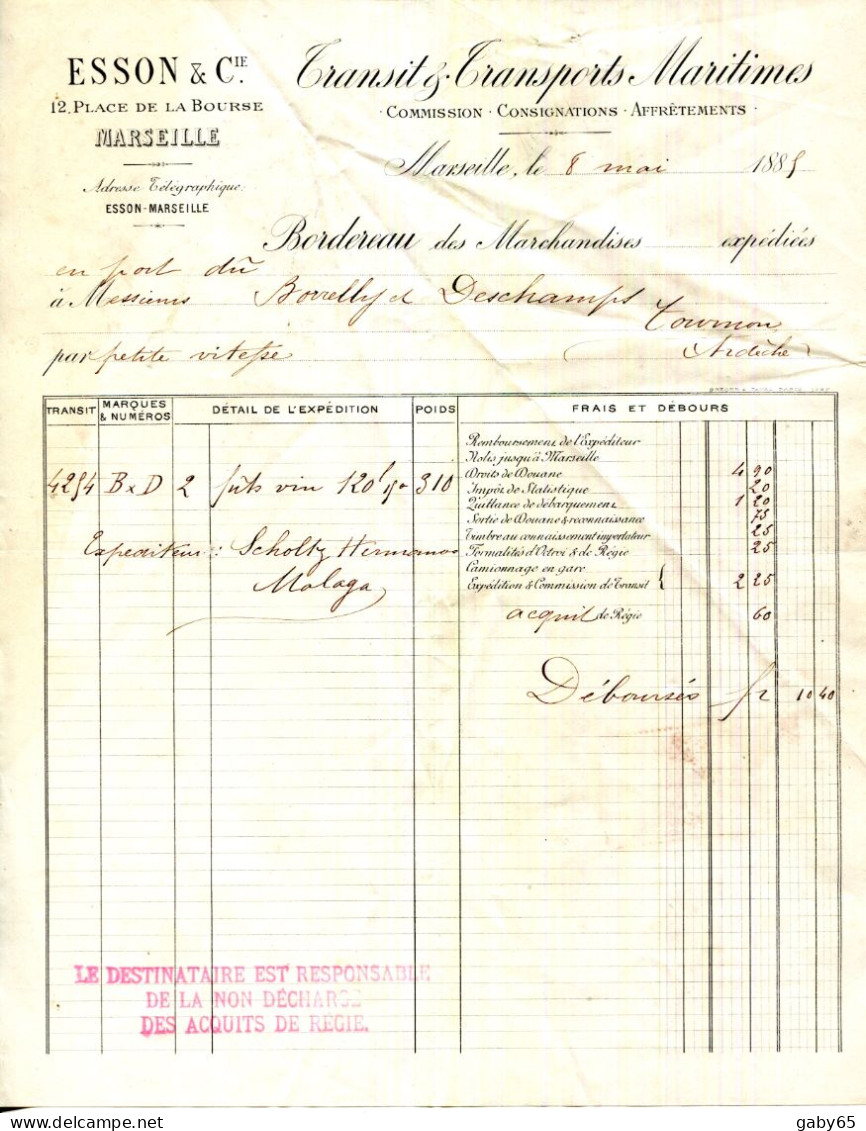 ESSON & CIE
12, PLACE DE LA BOURSE
MARSEILLE
Adresse Télégraphique:
ESSON-MARSEILLE
Transit & Transports Maritimes
· COMMISSION · CONSIGNATIONS · AFFRÊTEMENTS ·
Marseille, le 8 mai 1885
Bordereau des Marchandises expédiées
en port dû
à Messieurs Borrelly et Deschamps
Tournon
par petite vitesse (Ardèche)
TRANSIT MARQUES & NUMÉROS DÉTAIL DE L'EXPÉDITION POIDS FRAIS ET DÉBOURS
Remboursement de l'Expéditeur
Nolis jusqu'à Marseille
4254 B & D 2 fûts vin 120 l 15° 310
Droits de Douane 4 90
Impôt de Statistique 20
Quittance de débarquement 1 20
Sortie de Douane & reconnaissance 75
Timbre au connaissement importateur 25
Formalités d'Octroi & de Régie 25
Camionnage en gare
Expédition & Commission de Transit 2 25
Expediteur : Scholtz Hermanos
Malaga
acquit de Régie 60
Déboursés fr 10 40
LE DESTINATAIRE EST RESPONSABLE
DE LA NON DÉCHARGE
DES ACQUITS DE RÉGIE.
delcampe.net
gaby65